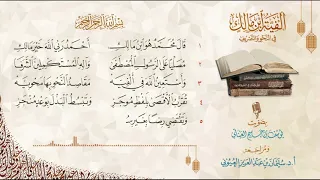 ألفية ابن مالك
في النحو والتصريف
بسم الله الرحمن الرحيم
١ قَالَ مُحَمَّدٌ هُوَ ابْنُ مَالِكِ أَحْمَدُ رَبِّي اللهَ خَيْرَ مَالِكِ
٢ مُصَلِّيًا عَلَى الرَّسُولِ الْمُصْطَفَى وَآلِهِ الْمُسْتَكْمِلِينَ الشَّرَفَا
٣ وَأَسْتَعِينُ اللهَ فِي أَلْفِيَّهْ مَقَاصِدُ النَّحْوِ بِهَا مَحْوِيَّهْ
٤ تُقَرِّبُ الْأَقْصَى بِلَفْظٍ مُوجَزِ وَتَبْسُطُ الْبَذْلَ بِوَعْدٍ مُنْجَزِ
٥ وَتَقْتَضِي رِضًا بِغَيْرِ سُخْطِ
بصوت
أ.د. سليمان بن عبد العزيز العيوني